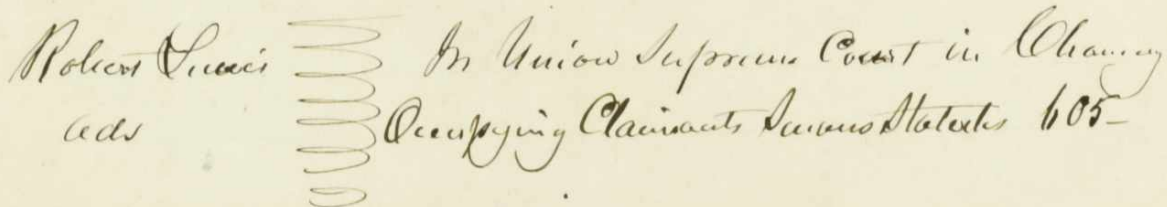 Robert Lewis
ads
In Union Supreme Court in Chancery
Occupying Claimants Swans Statutes 605-